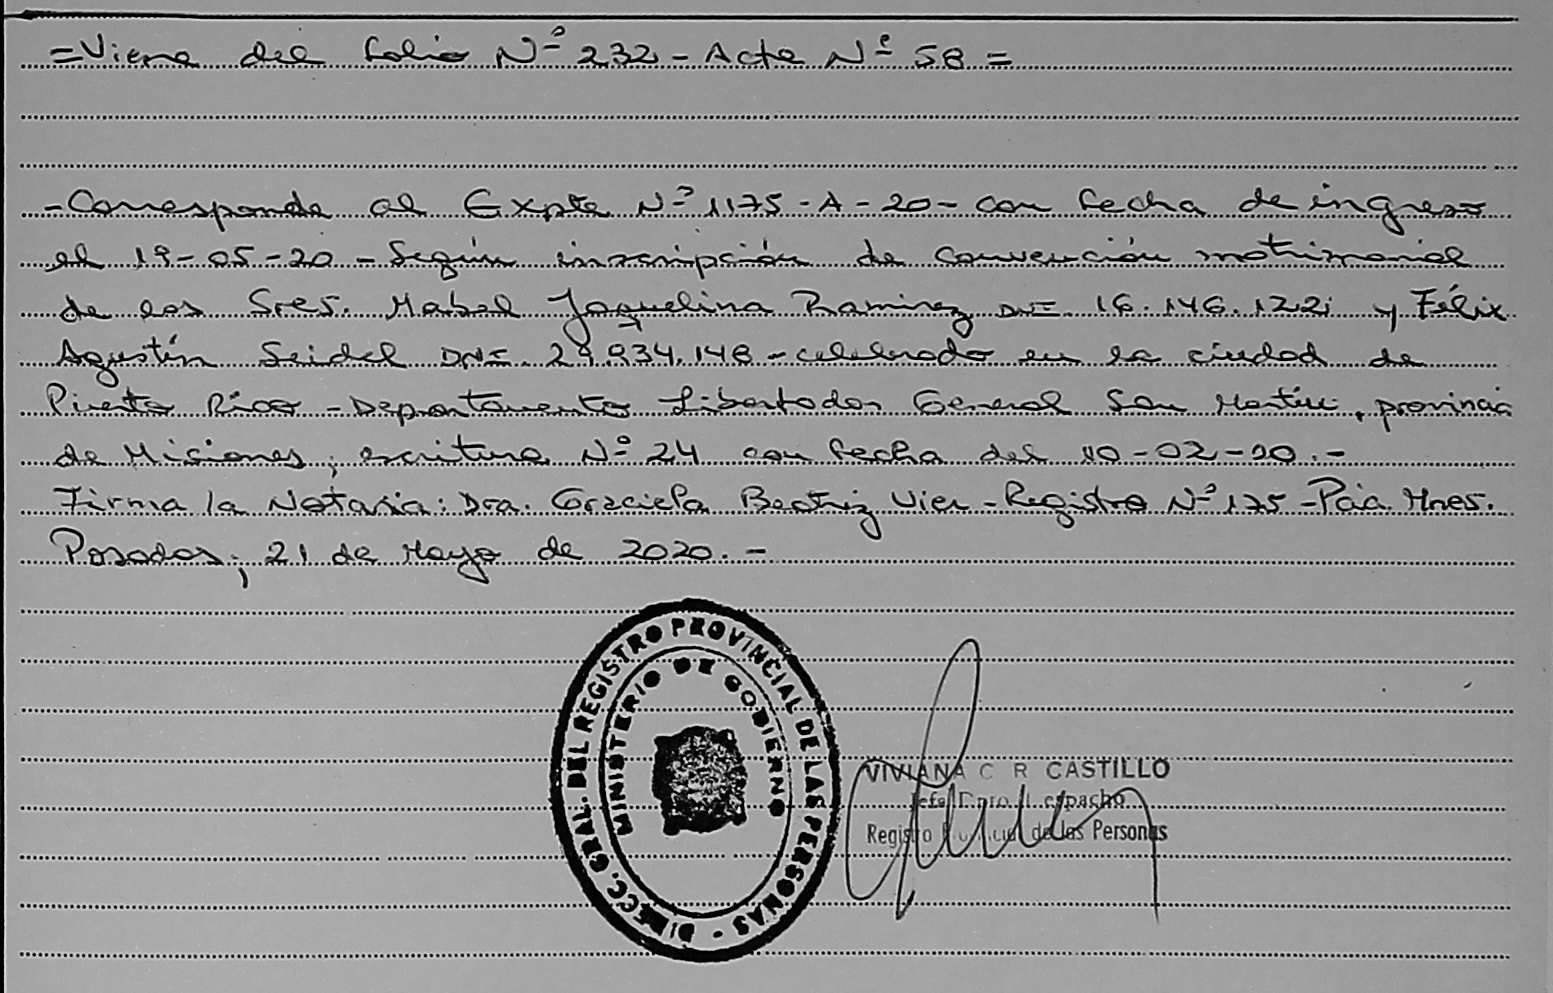 =Viene del folio Nº 232 - Acta Nº 58 =
-Corresponde al Expte Nº 1175 - A - 20 - con fecha de ingreso
el 19-05-20 - Según inscripción de convención matrimonial
de los Sres. Mabel Jaquelina Ramirez DNI 16.146.122 y Félix
Agustín Seidel DNI 29.934.148 - celebrado en la ciudad de
Puerto Rico - Departamento Libertador General San Martín, provincia
de Misiones, escritura Nº 24 con fecha del 10-02-20.-
Firma la Notaria: Dra. Graciela Beatriz Vier - Registro Nº 175 - Pcia. Mnes.
Posadas, 21 de Mayo de 2020.-
DIRECC. GRAL. DEL REGISTRO PROVINCIAL DE LAS PERSONAS -
MINISTERIO DE GOBIERNO
VIVIANA C R CASTILLO
Jefa Dpto. Despacho
Registro Provincial de las Personas